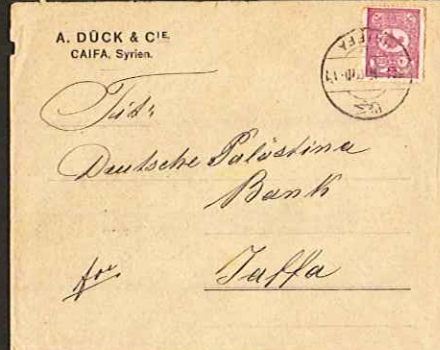 A. DÜCK & CIE.
CAIFA, Syrien.
Tit:
Deutsche Palästina
Bank
Jaffa